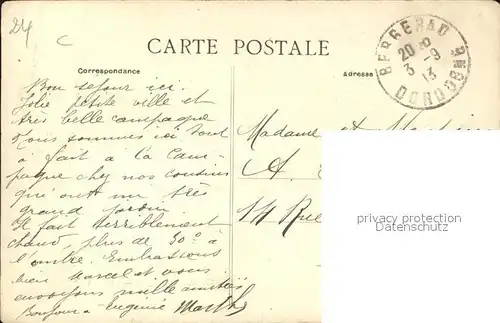 24
C
CARTE POSTALE
Correspondance
Adresse
BERGERAC
20
3 - 9
13
DORDOGNE
Bon séjour ici.
Jolie petite ville et
très belle campagne
Nous sommes ici tout
à fait à la cam-
pagne chez nos cousins
qui ont un très
grand jardin.
Il fait terriblement
chaud, plus de 30° à
l'ombre. Embrassons
bien Marcel et vous
envoyons mille amitiés
Bonjour à Eugénie Marthe
Madame et
A.
14 Rue
privacy protection
watermark